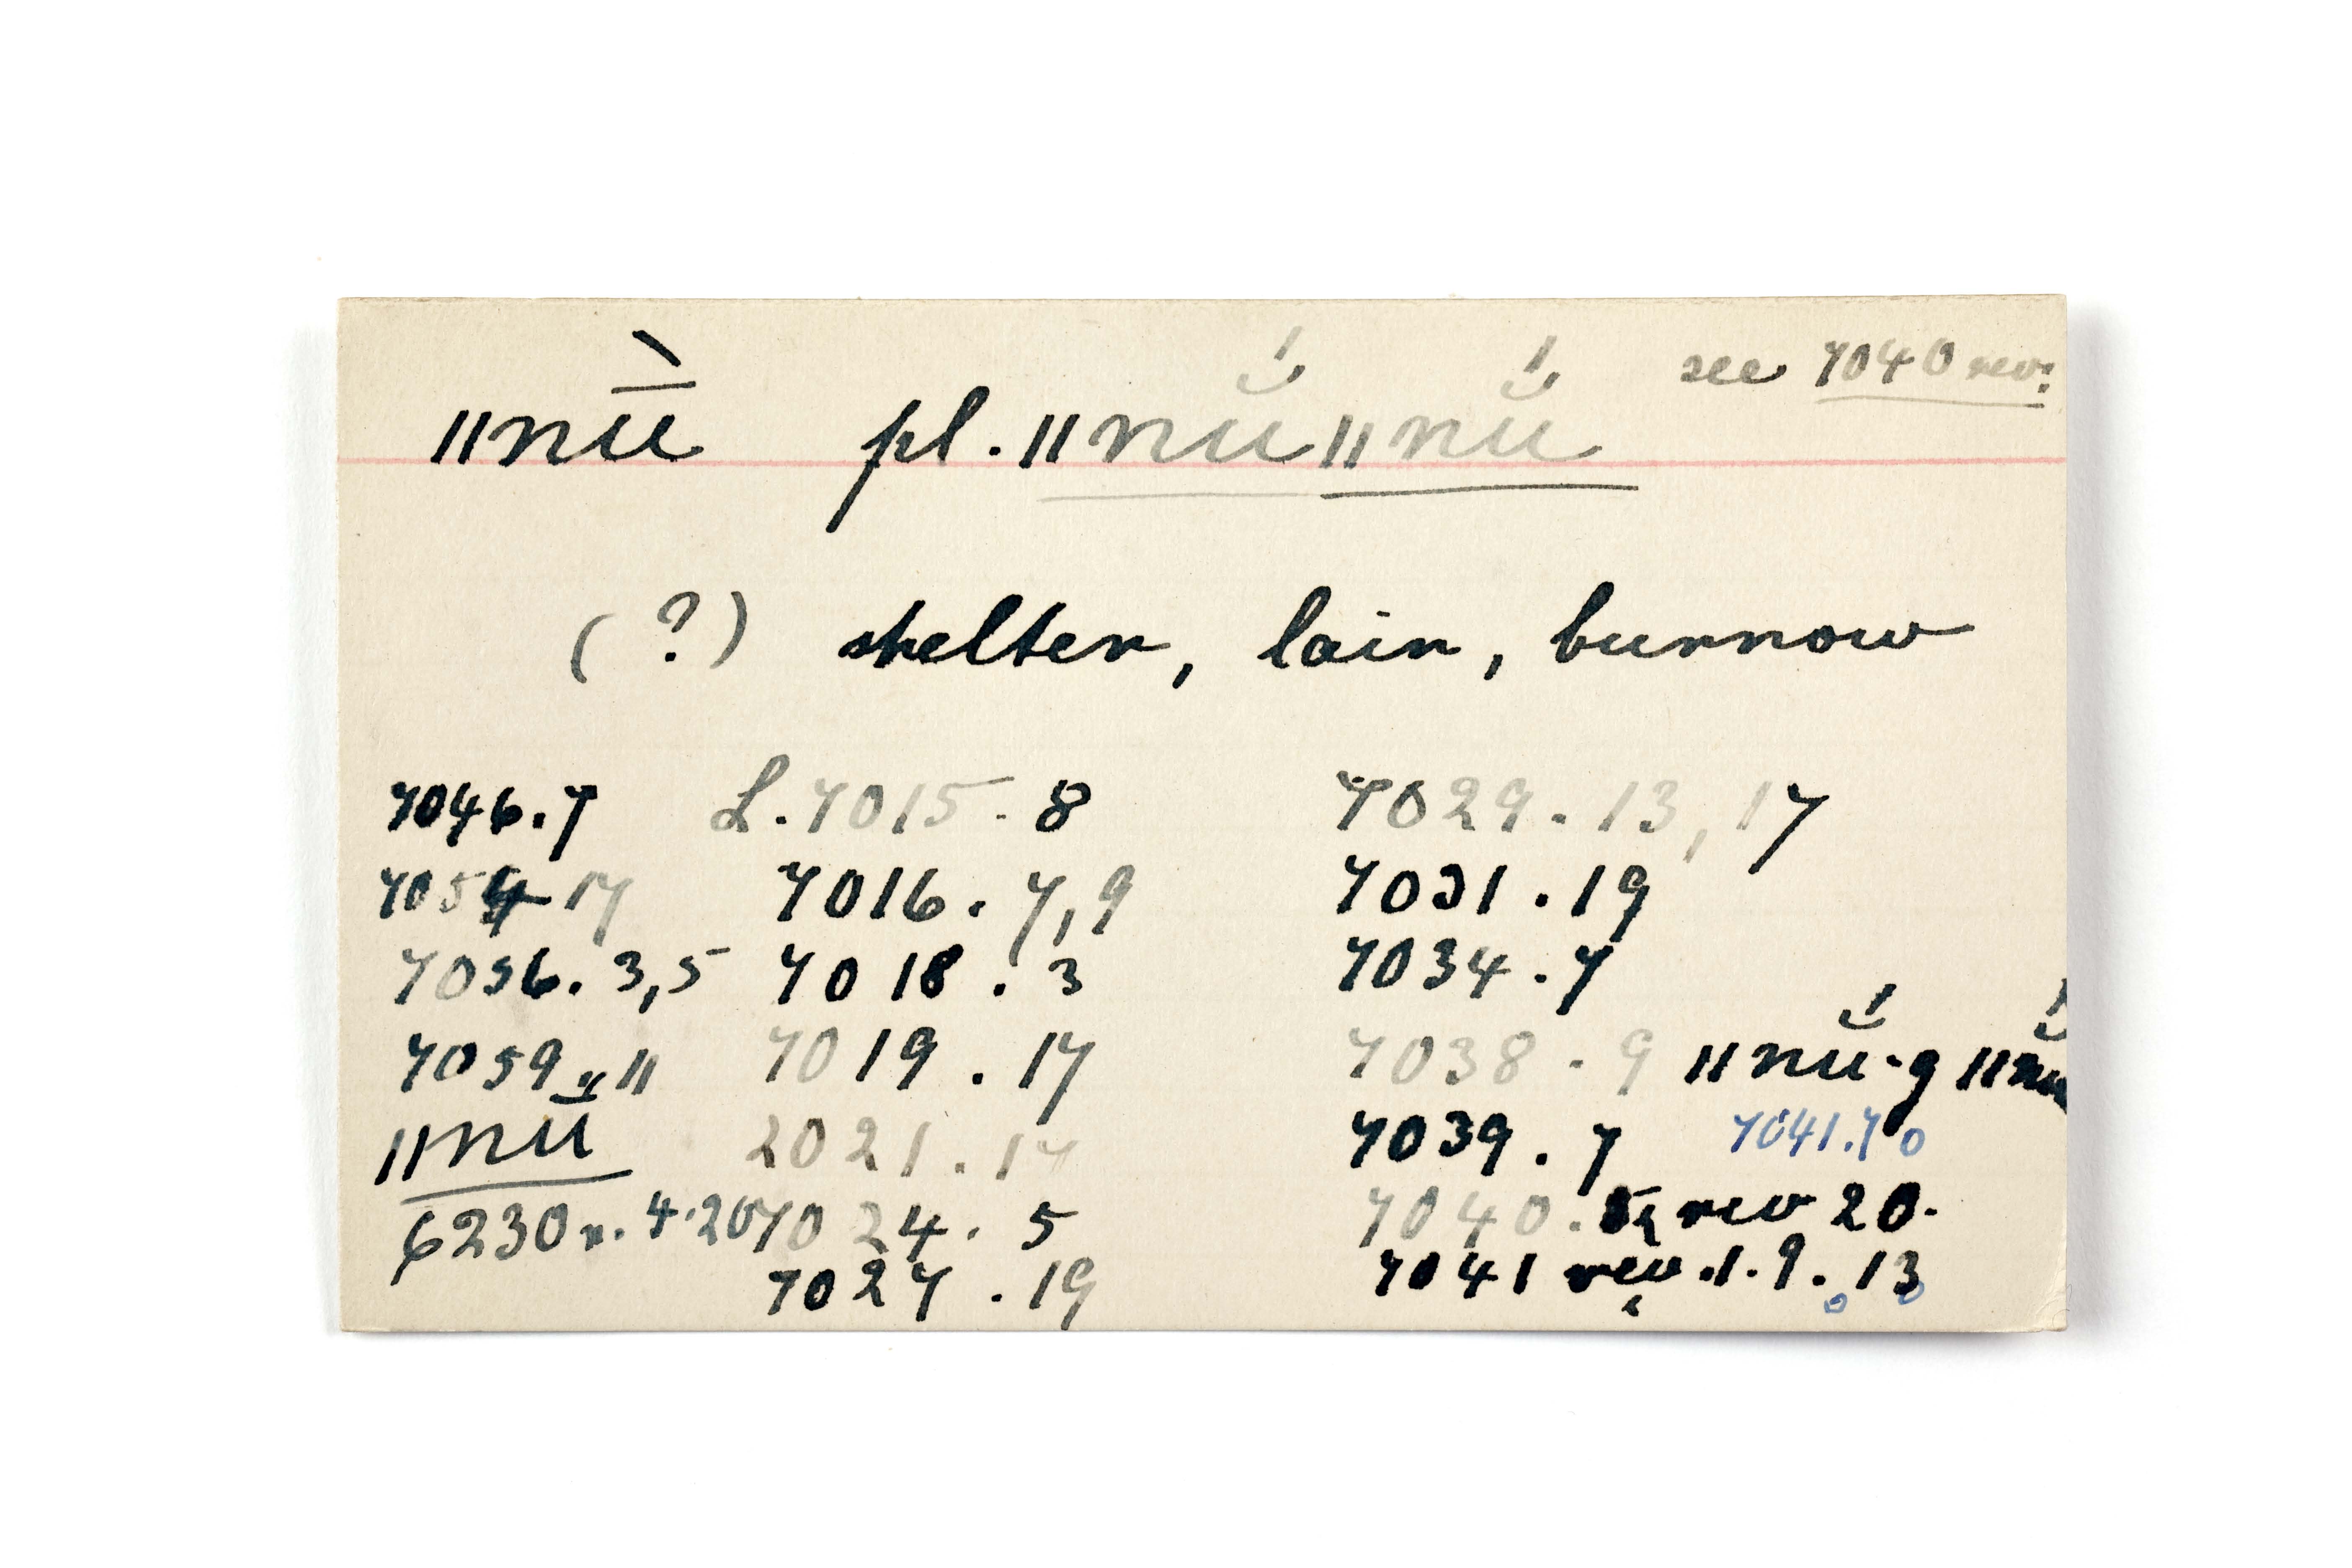 see 7040 rev:
ǁnṵ̄̀ pl. ǁnŭ́ ǁnŭ́
(?) shelter, lair, burrow
7046.7 L.7015.8 7029.13,17
7054 17 7016.7,9 7031.19
7056.3,5 7018.3 7034.7
7059 11 7019.17 7038.9 ǁnŭ́-g ǁnŭ́
ǁnṻ 2021.17 7039.7 7041.70
6230 r. 4.20 7024.5 7040. rev 20.
7027.19 7041 rev.1.9.13